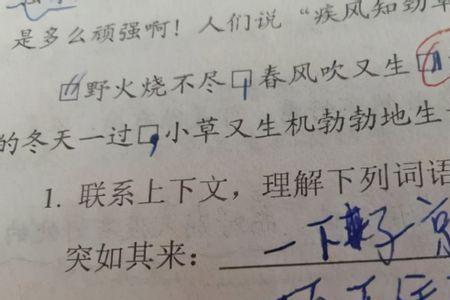 是多么顽强啊！人们说“疾风知劲草
“野火烧不尽，春风吹又生”
的冬天一过，小草又生机勃勃地生
1. 联系上下文，理解下列词语
突如其来：一下子